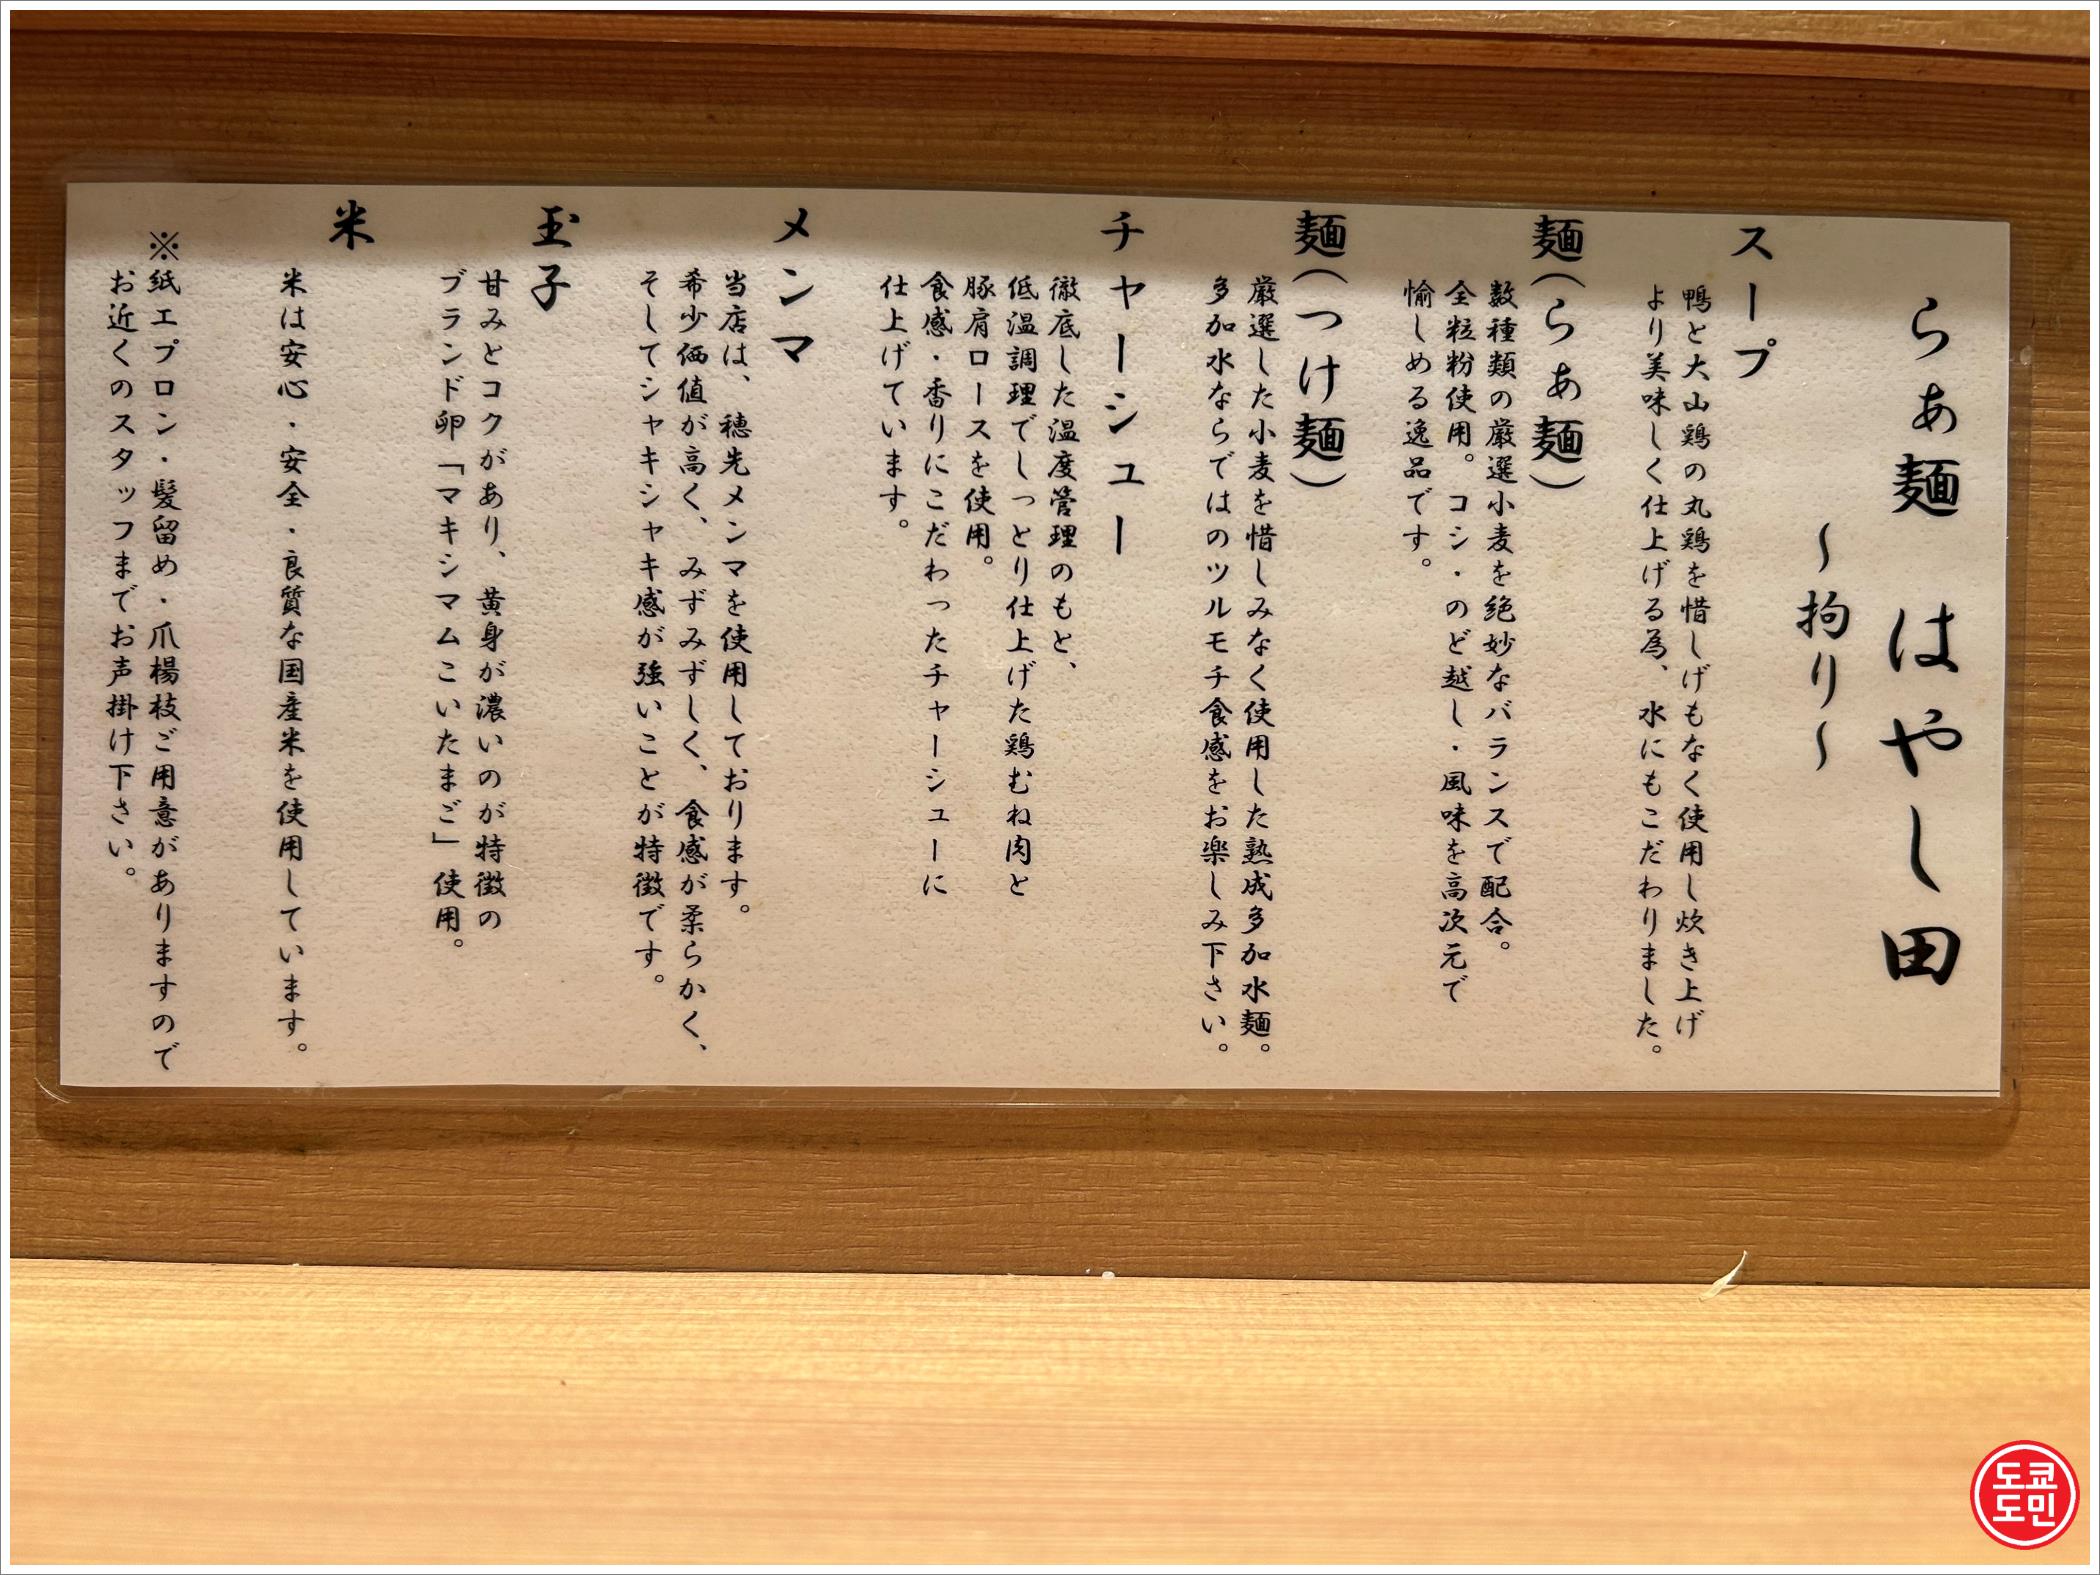 らぁ麺 はやし田
～拘り～
スープ
鴨と大山鶏の丸鶏を惜しげもなく使用し炊き上げ
より美味しく仕上げる為、水にもこだわりました。
麺(らぁ麺)
数種類の厳選小麦を絶妙なバランスで配合。
全粒粉使用。コシ・のど越し・風味を高次元で
愉しめる逸品です。
麺(つけ麺)
厳選した小麦を惜しみなく使用した熟成多加水麺。
多加水ならではのツルモチ食感をお楽しみ下さい。
チャーシュー
徹底した温度管理のもと、
低温調理でしっとり仕上げた鶏むね肉と
豚肩ロースを使用。
食感・香りにこだわったチャーシューに
仕上げています。
メンマ
当店は、穂先メンマを使用しております。
希少価値が高く、みずみずしく、食感が柔らかく、
そしてシャキシャキ感が強いことが特徴です。
玉子
甘みとコクがあり、黄身が濃いのが特徴の
ブランド卵「マキシマムこいたまご」使用。
米
米は安心・安全・良質な国産米を使用しています。
※紙エプロン・髪留め・爪楊枝ご用意がありますので
お近くのスタッフまでお声掛け下さい。
도쿄
도민